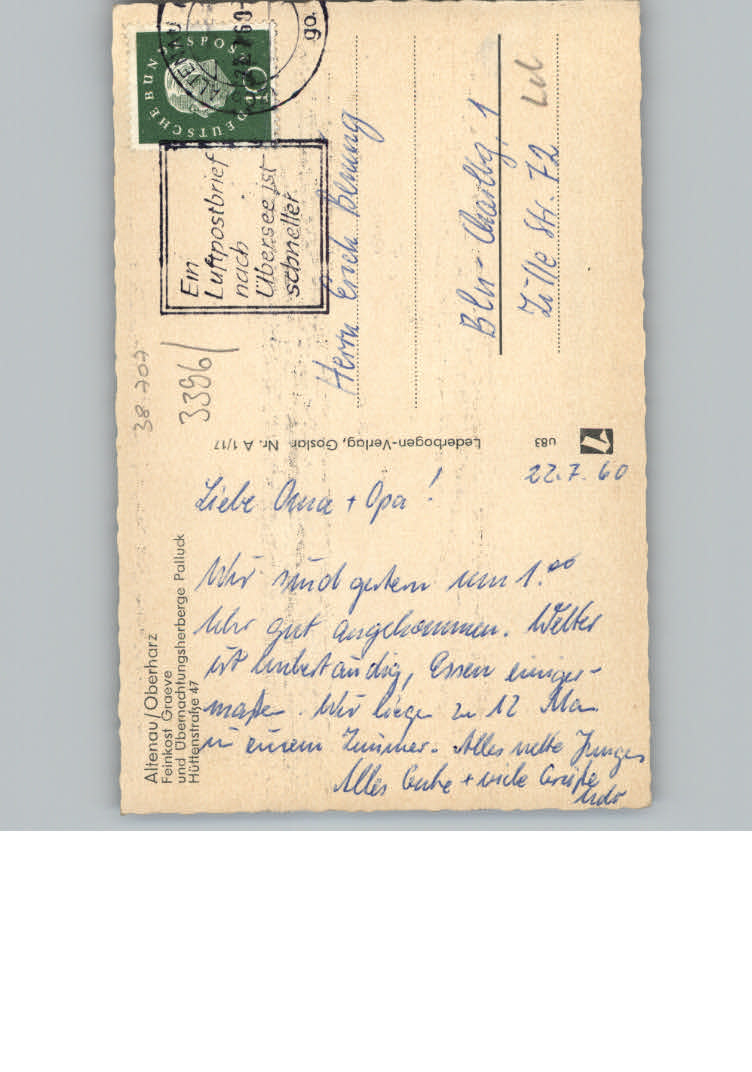 Altenau/Oberharz
Feinkost Graeve
und Übernachtungsherberge Palluck
Hüttenstraße 47
22.7.60
Liebe Oma + Opa!
Wir sind gestern um 1.00
Uhr gut angekommen. Wetter
ist unbeständig, Essen einiger-
maßen. Wir liegen zu 12 Mann
in einem Zimmer. Alles nette Jungs
Alles Gute + viele Grüße
Udo
Lederbogen-Verlag, Goslar Nr. A 1/17
U83
38 707
3396/
DEUTSCHE BUNDESPOST
ALTENAU
22.7.60
go.
Ein
Luftpostbrief
nach
Übersee ist
schneller
Herrn Erich
Bln-Charlbg. 1
Zille Str. 72